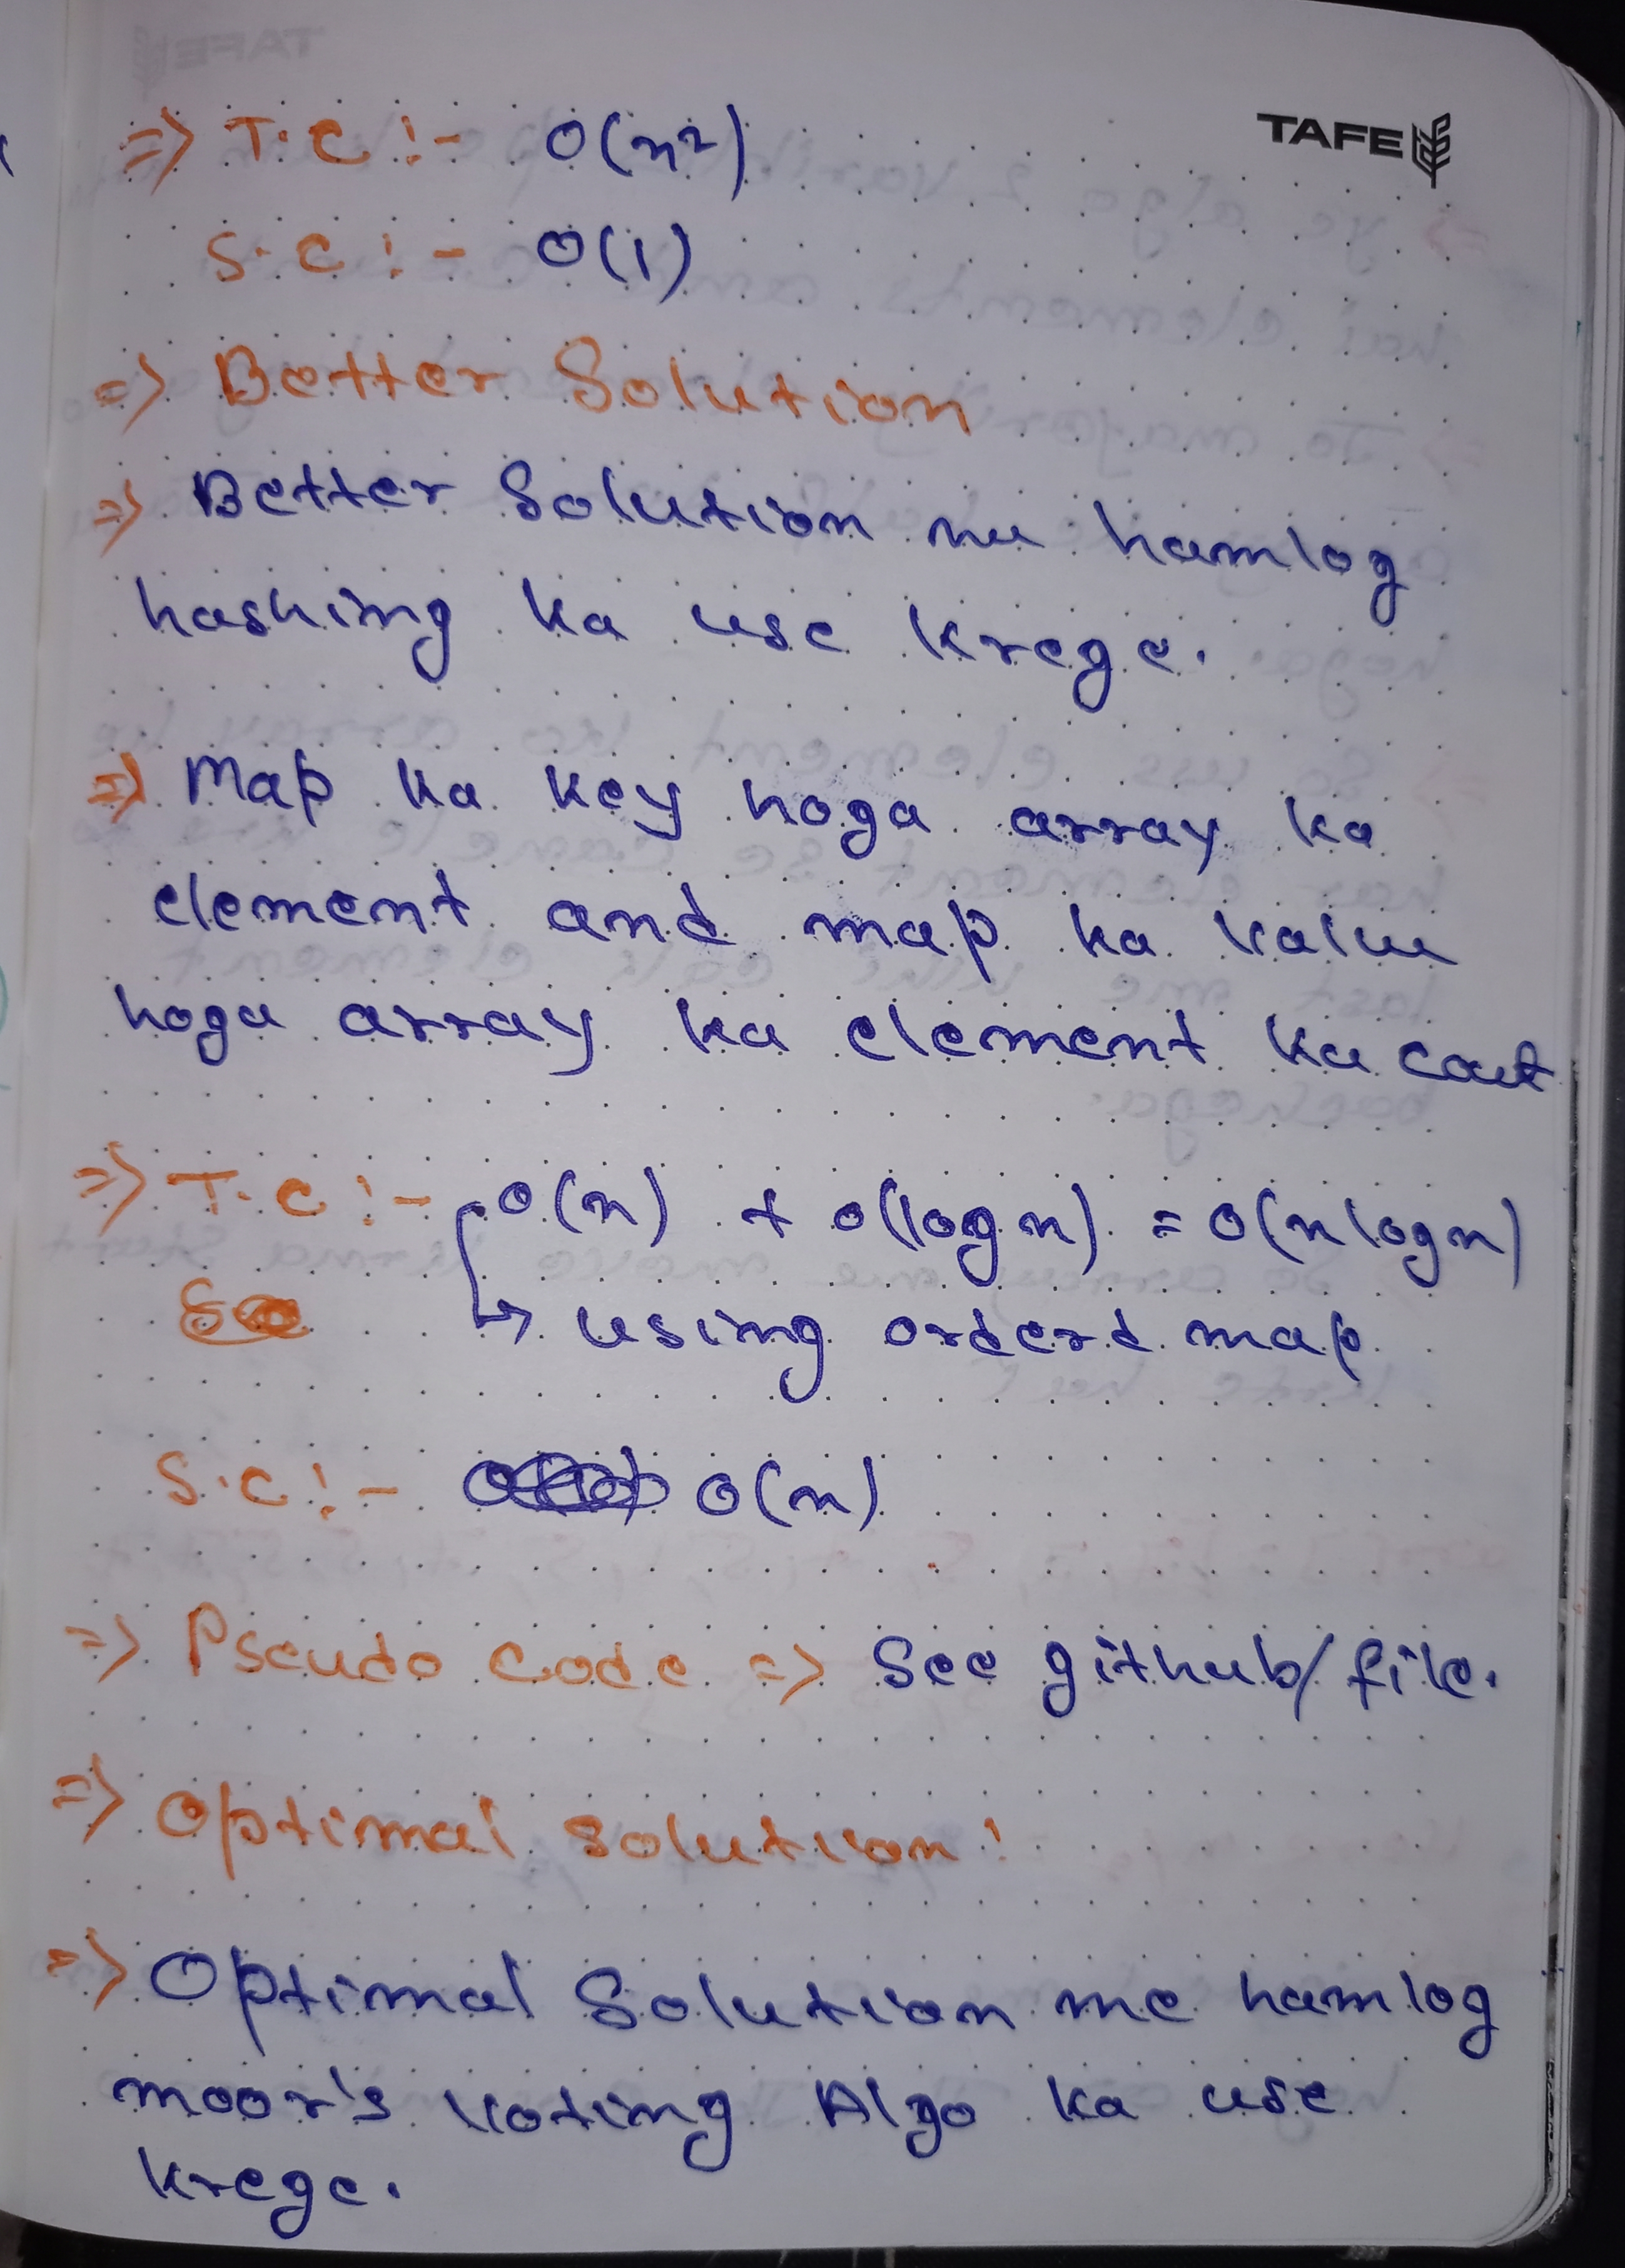 TAFE
=> T.C :- O(n²)
S.C :- O(1)
=> Better Solution
=> Better Solution me hamlog
hashing ka use krege.
=> Map ka key hoga array ka
element and map ka value
hoga array ka element ka cout
=> T.C :- O(n) + O(log n) = O(n log n)
↳ using orderd map
S.C :- O(n)
=> Pseudo Code => See github/file.
=> Optimal Solution :
=> Optimal Solution me hamlog
moor's voting Algo ka use
krege.